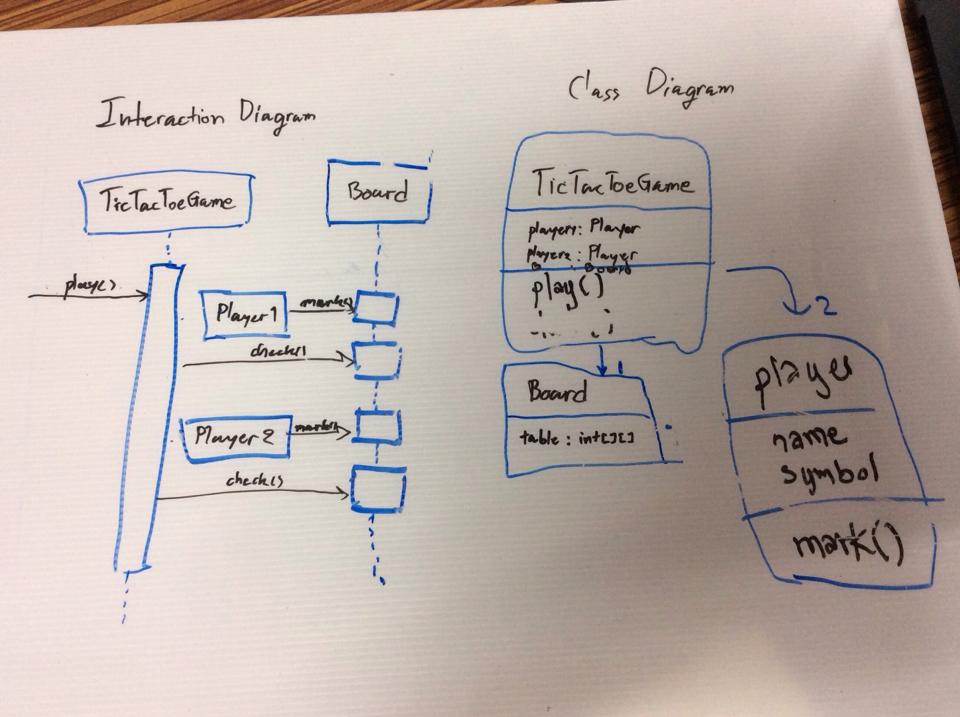 Interaction Diagram
TicTacToeGame
Board
play()
Player1
mark()
check()
Player2
mark()
check()
Class Diagram
TicTacToeGame
player1: Player
player2: Player
play()
1
Board
table: int[][]
2
player
name
symbol
mark()